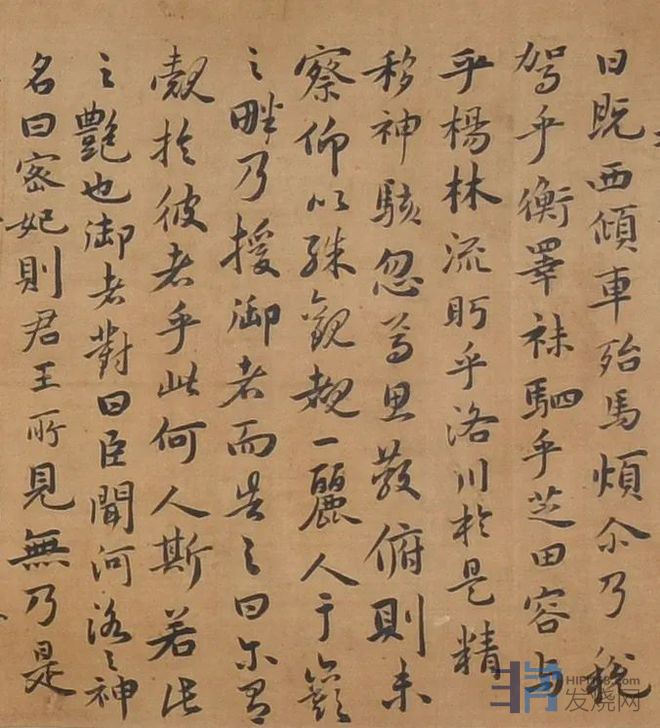 日既西傾車殆馬煩尒乃稅
駕乎衡睪袜駟乎芝田容与
乎楊林流眄乎洛川於是精
移神駭忽焉思散俯則未
察仰以殊觀覩一麗人于巖
之畔乃援御者而告之曰尔有
覿於彼者乎此何人斯若此
之艷也御者對曰臣聞河洛之神
名曰宓妃則君王所見無乃是
HIFI168.com
发烧网